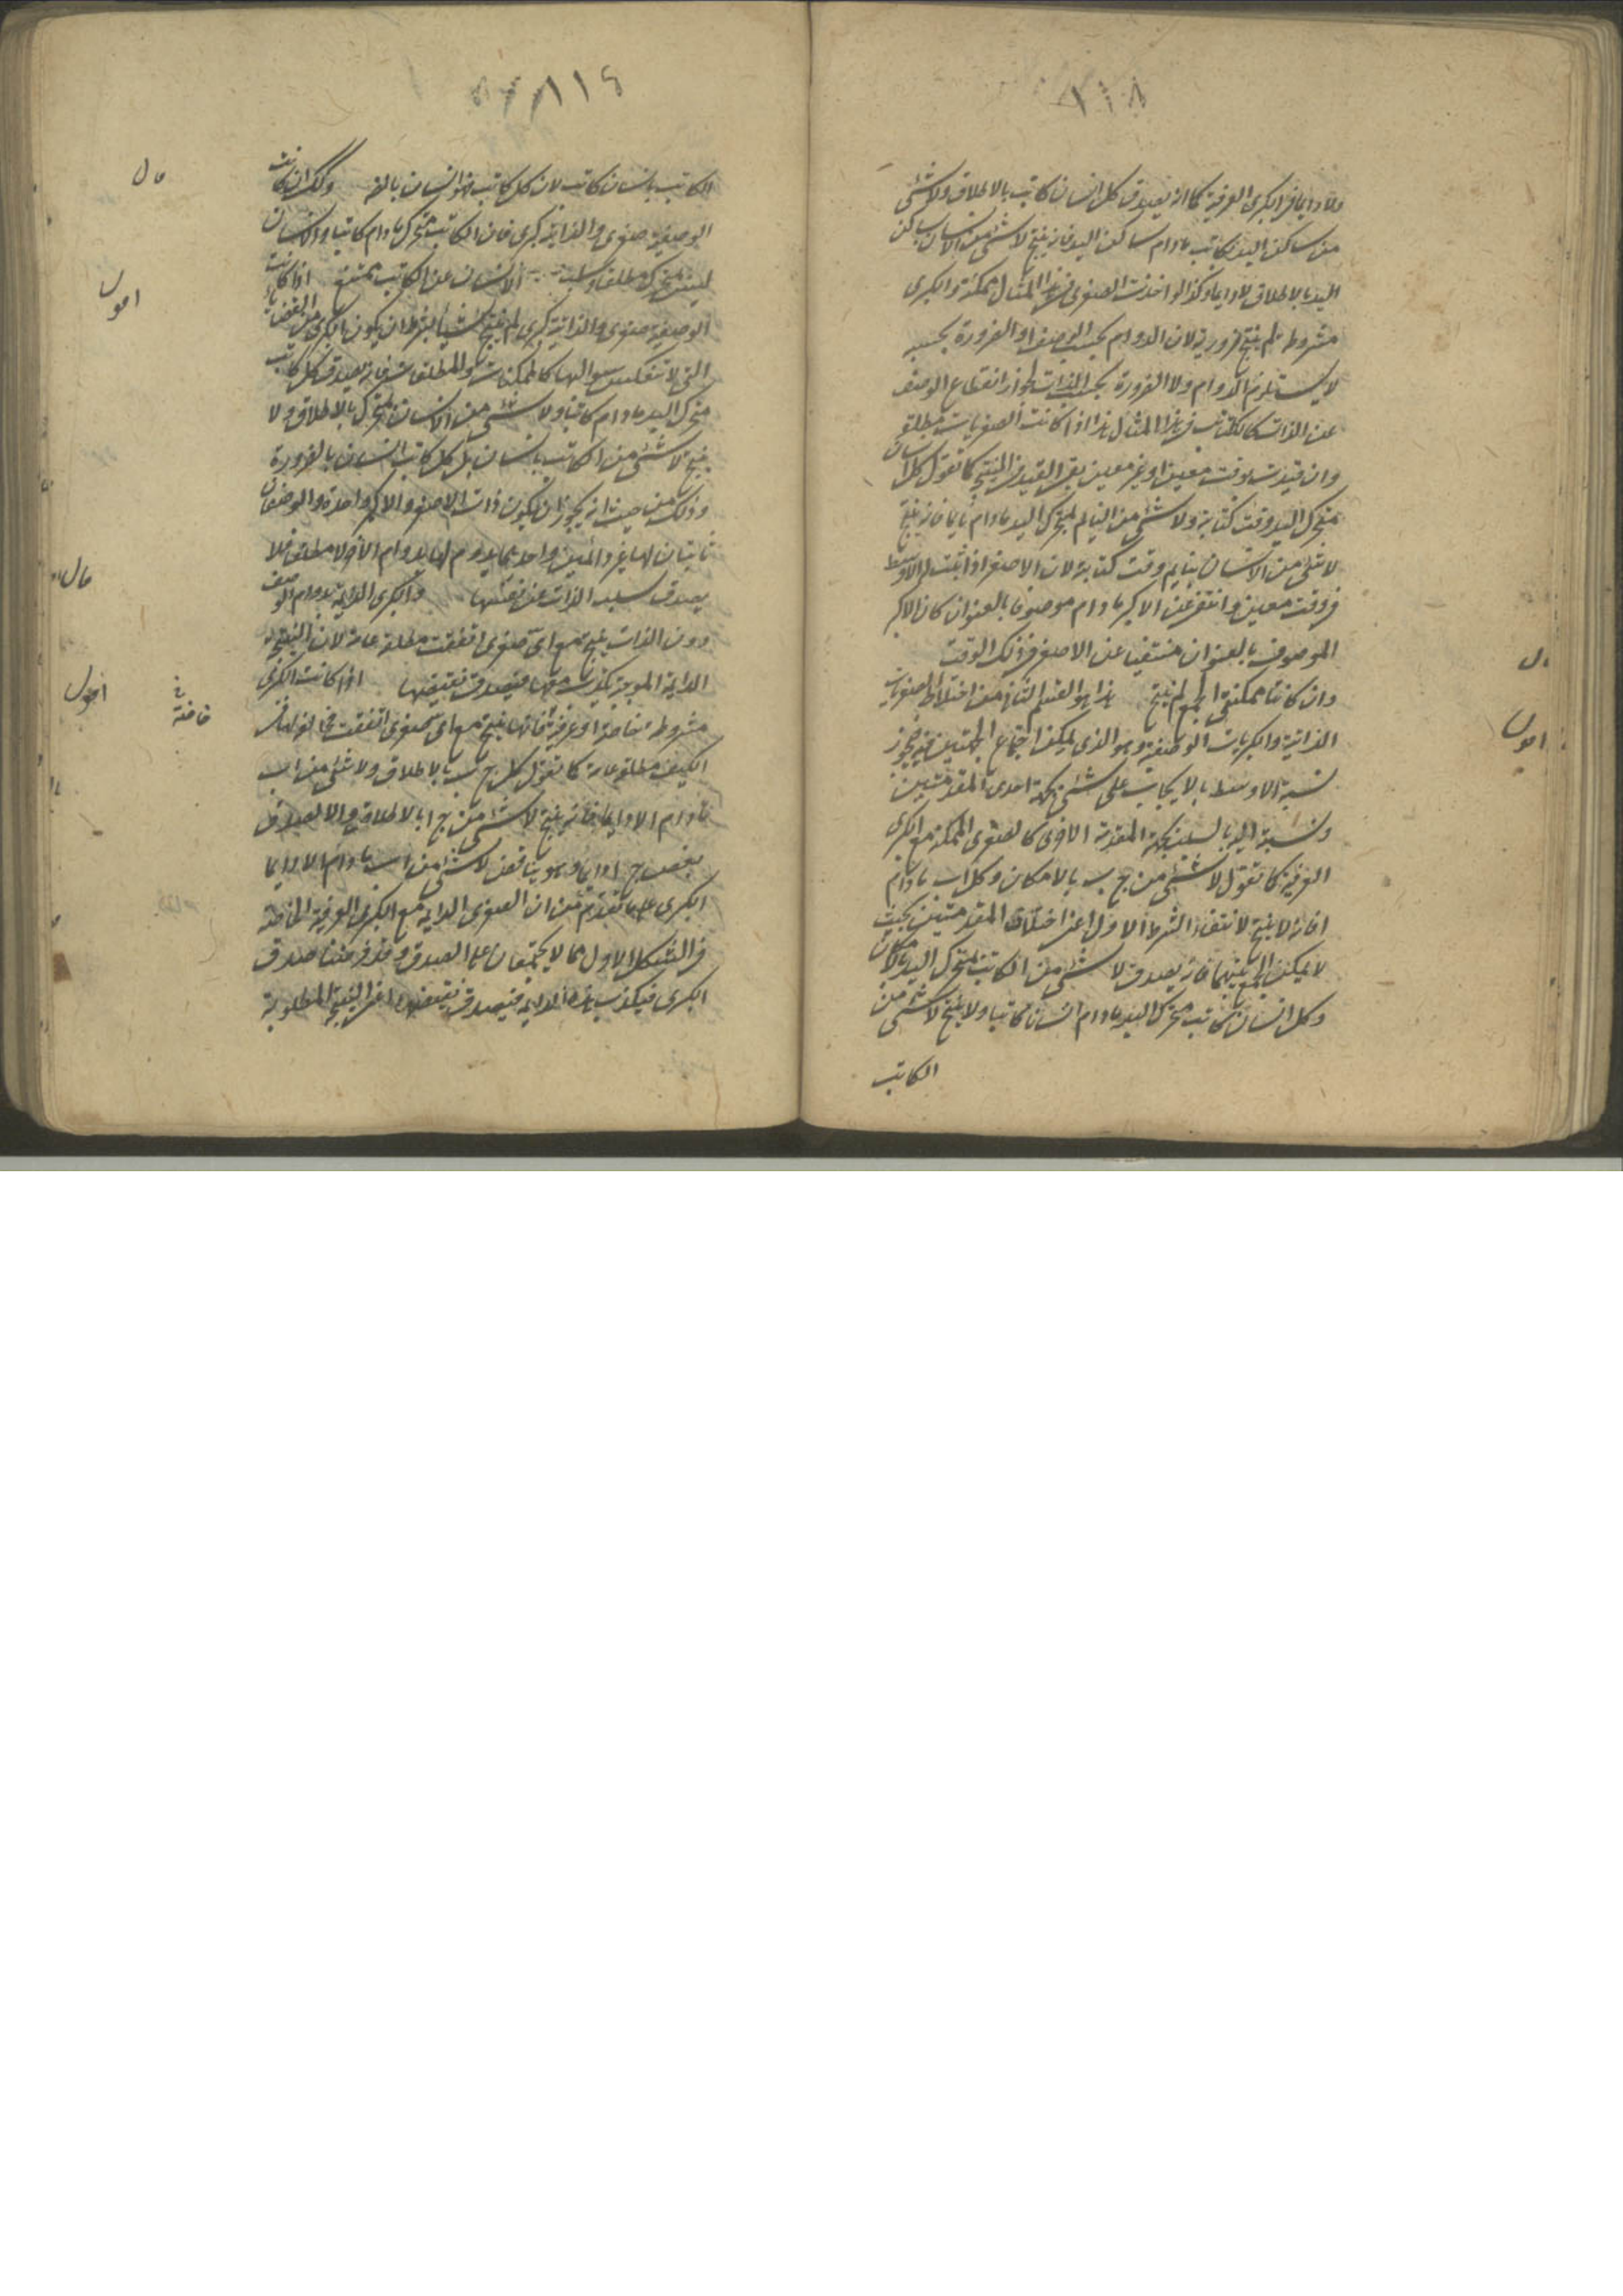 ١١٨
ولا دايما في الكبرى العرفية كما انه يصدق كل انسان كاتب بالاطلاق ولا شئ
من ساكن اليد بكاتب مادام ساكن اليد فانه ينتج لا شئ من الانسان بساكن
اليد بالاطلاق لا دايما وكذا لو اخذت الصغرى في هذا المثال ممكنة والكبرى
مشروطة لم ينتج ضرورية لان الدوام بحسب الوصف او الضرورة بحسبه
لا يستلزم الدوام ولا الضرورة بحسب الذات لجواز انقطاع الوصف
عن الذات كالكتابة في هذا المثال هذا اذا كانت الصغريات مطلقة
وان قيدت بوقت معين او غير معين بقى القيد في النتيجة كما تقول كل انسان
متحرك اليد وقت كتابته ولا شئ من النايم بمتحرك اليد مادام نايما فانه ينتج
لا شئ من الانسان بنايم وقت كتابته لان الاصغر اذا ثبت له الاوسط
في وقت معين وانتفى عن الاكبر مادام موصوفا بالعنوان كان الاكبر
الموصوف بالعنوان منتفيا عن الاصغر في ذلك الوقت
وان كانتا ممكنتى الجمع لم ينتج هذا هو القسم الثانى من اختلاط الصغريات
الذاتية والكبريات الوصفية وهو الذى يمكن اجتماع الجهتين فيه فيجوز
نسبة الاوسط بالايجاب على شئ بجهة احدى المقدمتين
ونسبة اليه بالسلب بجهة المقدمة الاخرى كالصغرى الممكنة مع الكبرى
العرفية كما تقول لا شئ من ج ب بالامكان وكل ا ب مادام
ا فانه لا ينتج لانتفاء الشرط الاول اعنى اختلاف المقدمتين بحيث
لا يمكن الجمع بينهما فانه يصدق لا شئ من الكاتب بمتحرك اليد بالامكان
وكل انسان كاتب متحرك اليد مادام انسانا كاتبا ولا ينتج لا شئ من
الكاتب
ال
اقول
١١٩
الكاتب بانسان كاتب لان كل كاتب فهو انسان بالضرورة وكذلك ان كانت
الوصفية صغرى والذاتية كبرى فان الكاتب متحرك مادام كاتبا والانسان
ليس بمتحرك مطلقا وسلب الانسان عن الكاتب ممتنع اذا كانت
الوصفية صغرى والذاتية كبرى لم ينتج شيئا بشرط ان يكون الكبرى من القضايا
التى لا تنعكس سوالبها كالممكنات والمطلقات فانه يصدق كل كاتب
متحرك اليد مادام كاتبا ولا شئ من الانسان بمتحرك بالاطلاق ولا
ينتج لا شئ من الكاتب بانسان بل كل كاتب انسان بالضرورة
وذلك من حيث انه يجوز ان يكون ذات الاصغر والاكبر واحدة والوصفان
ثابتان لها غير دائمين واحدهما يدوم لها بدوام الاخر لا مطلقا فلا
يصدق سلب الذات عن نفسها والكبرى الدايمة بدوام الوصف
دون الذات ينتج مع اى صغرى اتفقت مطلقة عامة لان النتيجة
الدايمة الموجبة يكذب معها فيصدق نقيضها اذا كانت الكبرى
مشروطة خاصة او عرفية فانها ينتج مع اى صغرى اتفقت مخالفة لها في
الكيف مطلقة عامة كما تقول كل ج ب بالاطلاق ولا شئ من ا ب
مادام ا لا دايما فانه ينتج لا شئ من ج ا بالاطلاق والا لصدق
بعض ج ا دايما وهو يناقض لا شئ من ا ب مادام ا لا دايما
الكبرى على ما تقدم من ان الصغرى الدايمة مع الكبرى العرفية الخاصة
في الشكل الاول مما لا يجتمعان على الصدق وقد فرضنا صدق
الكبرى فيكذب هذه الدايمة فيصدق نقيضها اعنى النتيجة المطلوبة
قال
اقول
قال
اقول